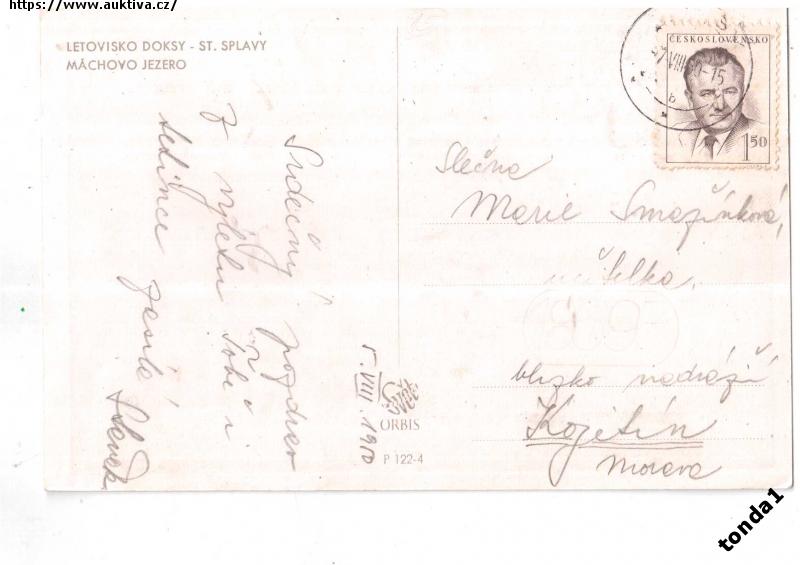 https://www.auktiva.cz/
LETOVISKO DOKSY - ST. SPLAVY
MÁCHOVO JEZERO
ČESKOSLOVENSKO
VIII
-15
b
1 50
Srdečný pozdrav
z výletu Tobě i
rodince zasílá
Slečna
Marie
učitelka
blízko nádraží
Kojetín
Morava
5. VIII. 1950
ORBIS
P 122-4
tonda1